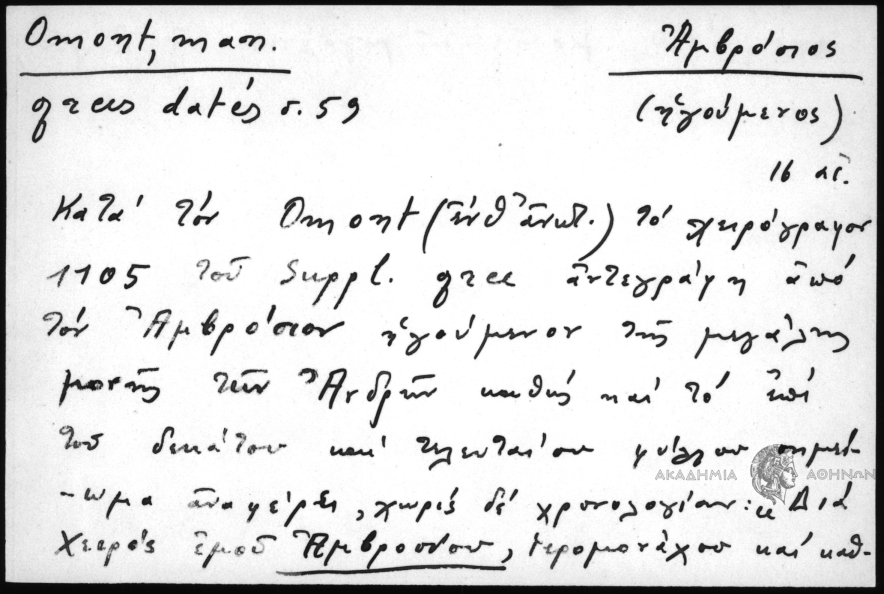 Omont, man.
Ἀμβρόσιος
grecs datés σ. 59
(ἡγούμενος)
16 αἰ.
Κατά τόν Omont (ἔνθ' ἄνωτ.) τό χειρόγραφον
1105 τοῦ Suppl. grec ἀντεγράφη ἀπό
τόν Ἀμβρόσιον ἡγούμενον τῆς μεγάλης
μονῆς τῶν Ἀνδρῶν καθώς καί τό ἐπί
τοῦ δεκάτου καί τελευταίου φύλλου σημεί-
-ωμα ἀναφέρει, χωρίς δέ χρονολογίαν: "Διά
χειρός ἐμοῦ Ἀμβροσίου, ἱερομονάχου καί καθ-
ΑΚΑΔΗΜΙΑ ΑΘΗΝΩΝ